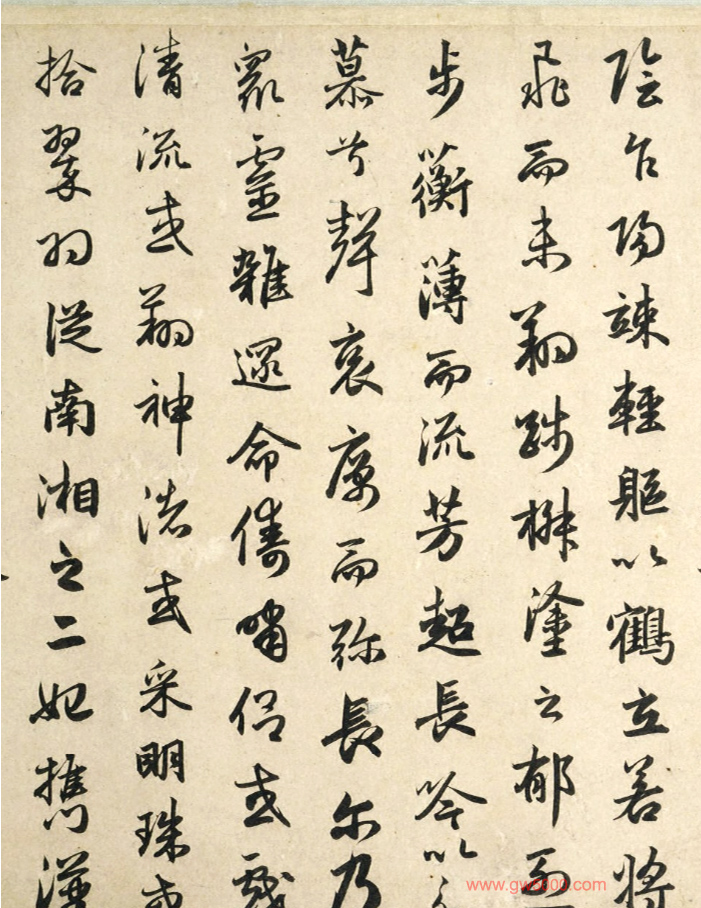 陰乍陽竦輕軀以鶴立若將
飛而未翔踐椒塗之郁烈
步蘅薄而流芳超長吟以
慕兮聲哀厲而弥長尓乃
衆靈雜遝命儔嘯侣或戲
清流或翔神渚或采明珠或
拾翠羽從南湘之二妃攜漢